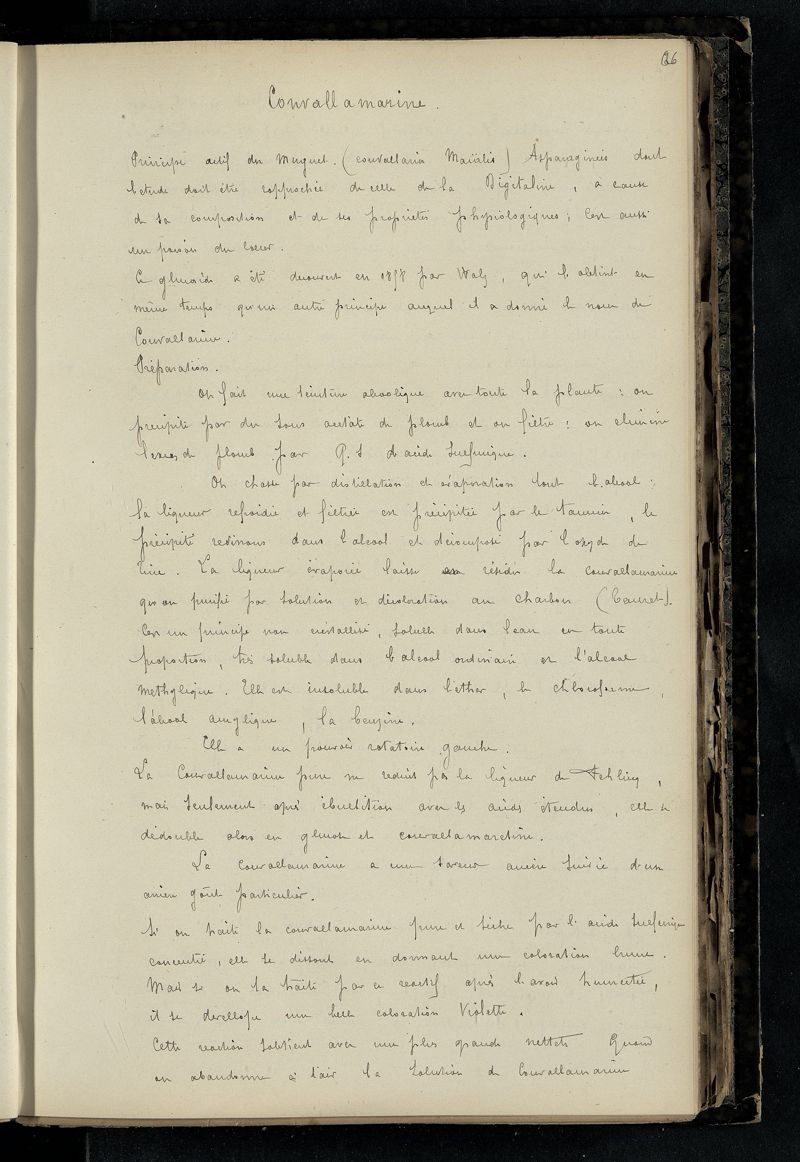 66
Convallamarine.
Principe actif du Muguet. (convallaria Maïalis) Asparaginées dont
l'etude doit être rapprochée de celle de la Digitaline, a cause
de sa composition et de ses proprietés physiologiques; c'est aussi
un poison du coeur.
Ce glucoside a été decouvert en 1858 par Walz, qui l'obtint en
même temps qu'un autre principe auquel il a donné le nom de
Convallarine.
Préparation.
On fait une teinture alcoolique avec toute la plante: on
precipite par du sous acetate de plomb et on filtre: on elimine
l'exces de plomb par Q.S d'acide sulfurique.
On chasse par distillation et evaporation tout l'alcool:
la liqueur refroidie et filtrée est précipitée par le tannin, le
précipité redissous dans l'alcool et décomposé par l'oxyde de
zinc. La liqueur évaporée laisse residu la convallamarine
qu'on purifie par solution et décoloration au charbon (Tanret).
C'est un principe non cristallisé, soluble dans l'eau en toute
proportion, très soluble dans l'alcool ordinaire et l'alcool
methylique. Elle est insoluble dans l'ether, le chloroforme,
l'alcool amylique, la benzine.
Elle a un pouvoir rotatoire gauche.
La Convallamarine pure ne reduit pas la liqueur de Fehling,
mais seulement après ébullition avec les acides étendus, elle se
dedouble alors en glucose et convallamaretine.
La Convallamarine a une saveur amère suivie d'un
arrière goût particulier.
Si on traite la convallamarine pure et sèche par l'acide sulfurique
concentré, elle se dissout en donnant une coloration brune.
Mais si on la traite par ce reactif après l'avoir humectée,
il se developpe une belle coloration Violette.
Cette reaction s'obtient avec une plus grande netteté Quand
on abandonne à l'air la solution de Convallamarine